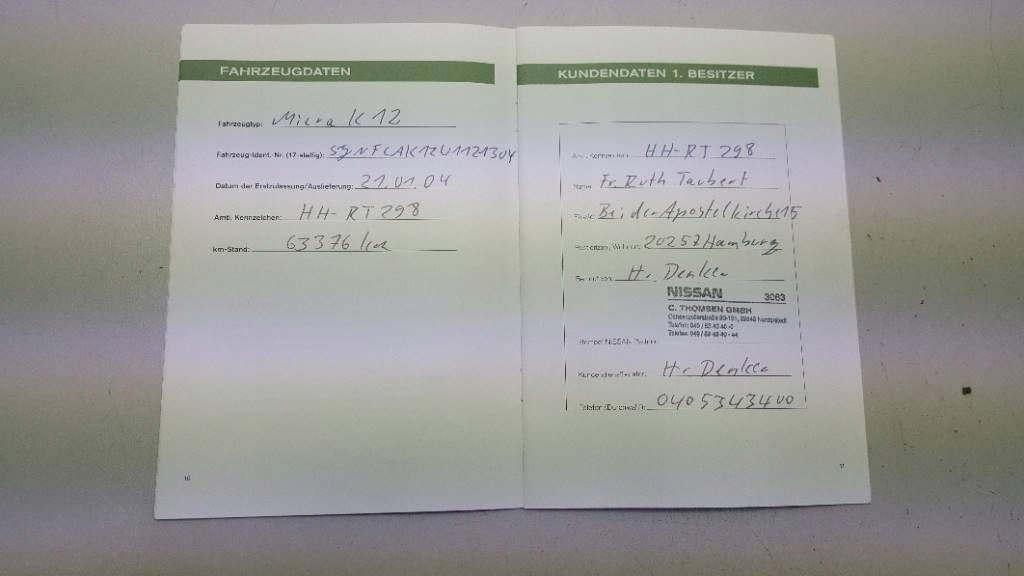 FAHRZEUGDATEN
Fahrzeugtyp: Micra K 12
Fahrzeug-Ident.-Nr. (17-stellig): SJNFCAK12U1121304
Datum der Erstzulassung/Auslieferung: 21.01.04
Amtl. Kennzeichen: HH-RT 298
km-Stand: 63376 km
10
KUNDENDATEN 1. BESITZER
Amtl. Kennzeichen: HH-RT 298
Name: Fr. Ruth Taubert
Bei der Apostelkirche 15
20257 Hamburg
Hr. Denker
NISSAN 3063
C. THOMSEN GMBH
Telefon: 040 / 53 43 40 -0
Telefax: 040 / 53 43 40 - 44
Stempel NISSAN-Partner:
Kundendienstberater: Hr. Denker
Telefon (Durchwahl): 0405343400
11